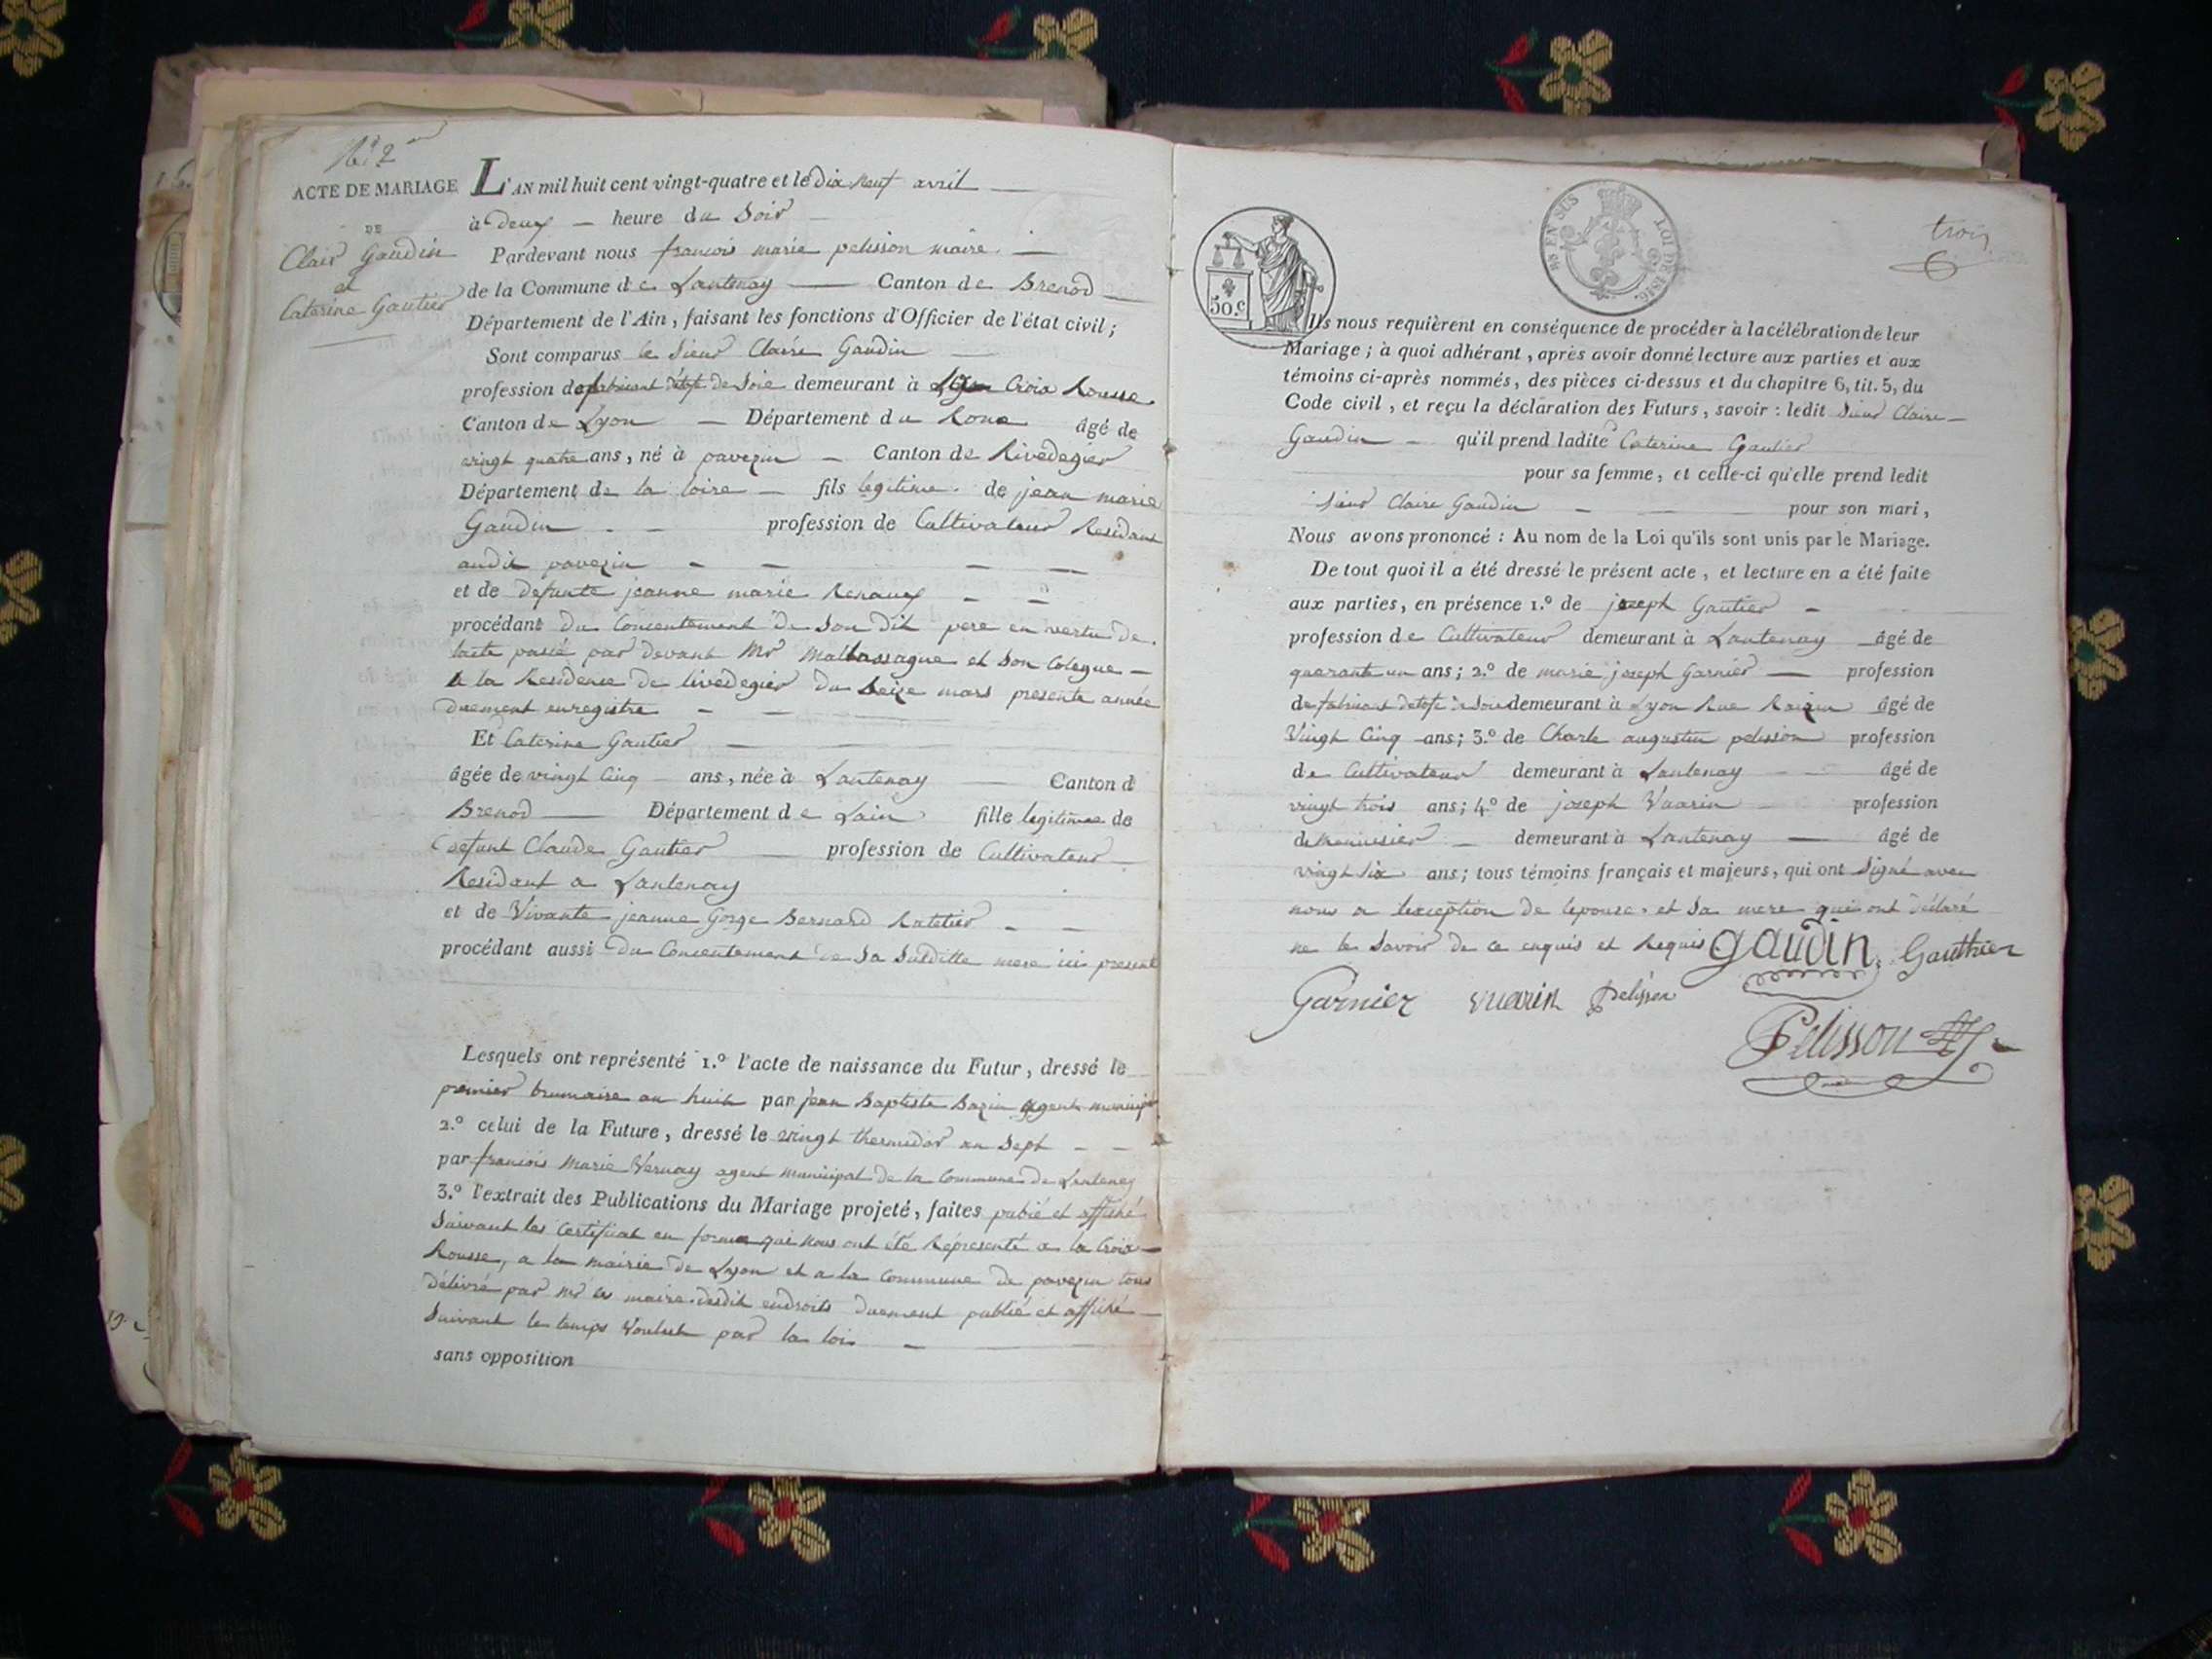 N.º 2
ACTE DE MARIAGE
DE
Clair Gaudin
et
Caterine Gautier
L'AN mil huit cent vingt-quatre et le Dix neuf avril
à Deux heure du Soir
Pardevant nous francois marie pelisson maire
de la Commune de Lantenay Canton de Brenod
Département de l'Ain, faisant les fonctions d'Officier de l'état civil;
Sont comparus le Sieur Claire Gaudin
profession de fabricant détofe de Soie demeurant à Croix Rousse
Canton de Lyon Département du Rone âgé de
vingt quatre ans, né à pavezin Canton de Rivedegier
Département de la loire fils legitime de jean marie
Gaudin profession de Cultivateur Residant
audit pavezin
et de defunte jeanne marie Renaux
procédant du Concentement de Son dit pere en vertu de
lacte passé par devant Mr Malbassague et Son Colegue
a la Residence de Rivedegier du Seize mars presente année
duement enregistre
Et Caterine Gautier
âgée de vingt Cinq ans, née à Lantenay Canton d
Brenod Département de Lain fille legitimee de
defunt Claude Gautier profession de Cultivateur
Residant a Lantenay
et de Vivante jeanne Gorge Bernard Ratelier
procédant aussi du Concentement de Sa Sudditte mere ici present
Lesquels ont représenté 1.º l'acte de naissance du Futur, dressé le
premier brumaire an huit par jean Baptiste Bazin agent municipal
2.º celui de la Future, dressé le vingt thermidor an Sept
par francois Marie Vernay agent municipal de la Commune de Lantenay
3.º l'extrait des Publications du Mariage projeté, faites publié et affiché
Suivant les Certificat en forme qui nous ont été Représenté a la Croix
Rousse, a la mairie de Lyon et a la Commune de pavezin tous
délivré par mr les maire desdit endroits duement publié et affiché
Suivant le temps voulut par la loi
sans opposition
50.c
EN SUS
LOI DE 1816.
trois
Ils nous requièrent en conséquence de procéder à la célébration de leur
Mariage; à quoi adhérant, après avoir donné lecture aux parties et aux
témoins ci-après nommés, des pièces ci-dessus et du chapitre 6, tit. 5, du
Code civil, et reçu la déclaration des Futurs, savoir: ledit Sieur Claire
Gaudin qu'il prend ladite Caterine Gautier
pour sa femme, et celle-ci qu'elle prend ledit
Sieur Claire Gaudin pour son mari,
Nous avons prononcé: Au nom de la Loi qu'ils sont unis par le Mariage.
De tout quoi il a été dressé le présent acte, et lecture en a été faite
aux parties, en présence 1.º de jozeph Gautier
profession de Cultivateur demeurant à Lantenay âgé de
quarante un ans; 2.º de marie jozeph Garnier profession
de fabricant detofe de Soie demeurant à Lyon Rue Raizin âgé de
Vingt Cinq ans; 3.º de Charle augustin pelisson profession
de Cultivateur demeurant à Lantenay âgé de
vingt trois ans; 4.º de jozeph Vuarin profession
de Menuisier demeurant à Lantenay âgé de
vingt Six ans; tous témoins français et majeurs, qui ont Signé avec
nous a lexception de lepouse et Sa mere qui ont déclaré
ne le Savoir de ce enquis et Requis gaudin. Gauthier
Garnier vuarin Pelisson
Pelisson